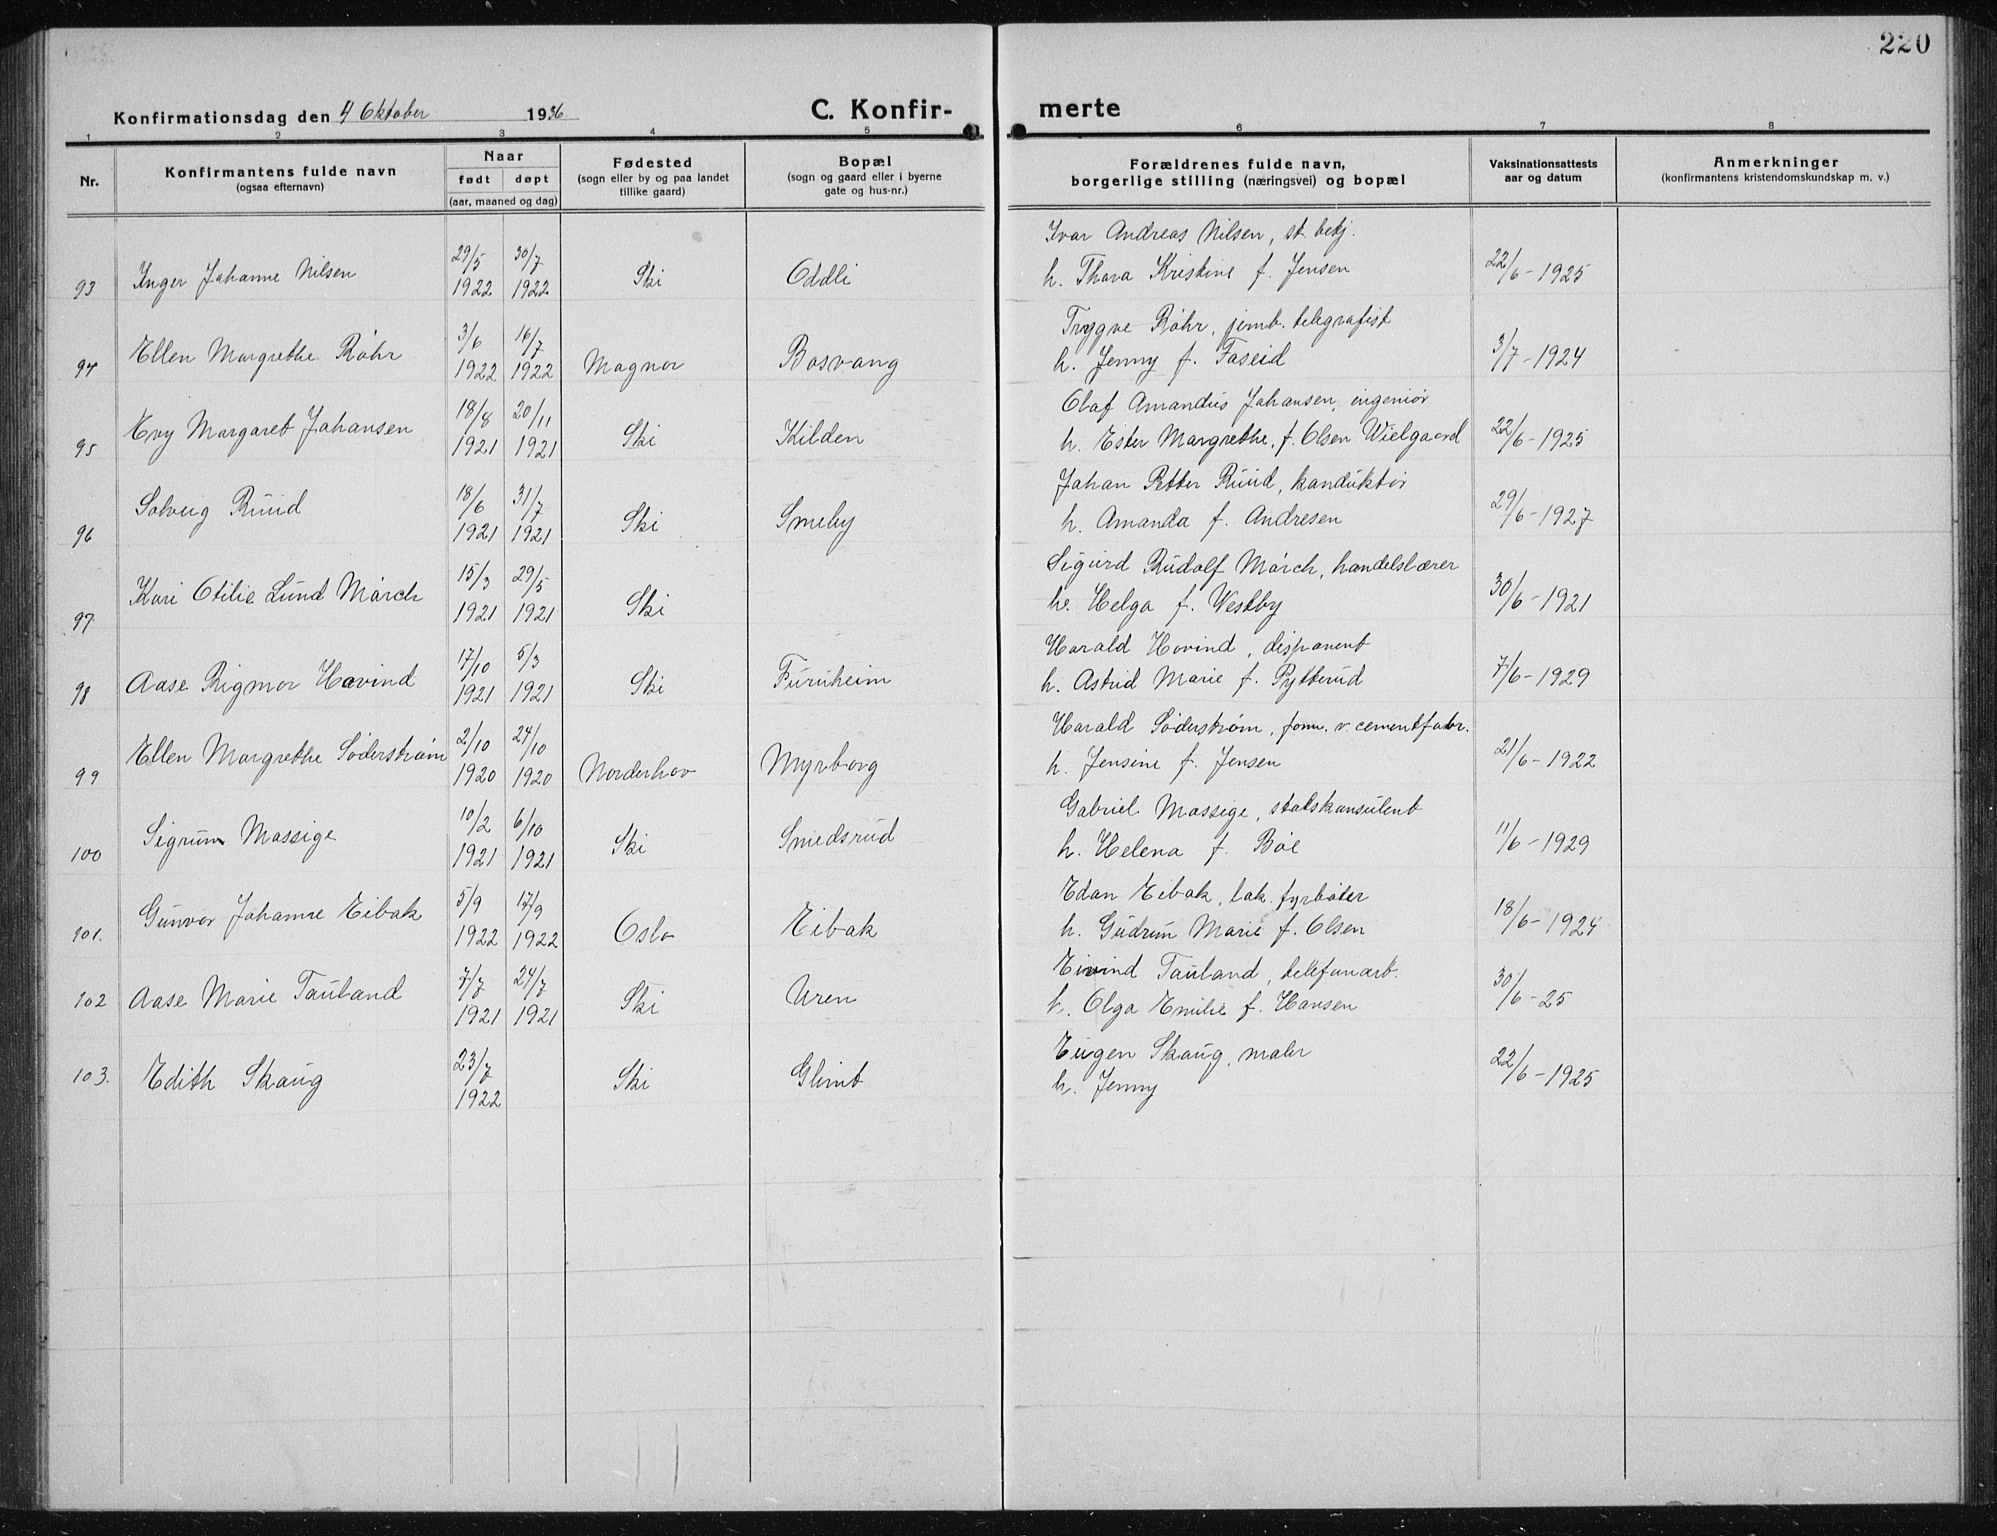 220
Konfirmationsdag den 4 Oktober 1936
C. Konfir-
merte
1 2 3 4 5 6 7 8
Nr.
Konfirmantens fulde navn
(ogsaa efternavn)
Naar
født døpt
(aar, maaned og dag)
Fødested
(sogn eller by og paa landet
tillike gaard)
Bopæl
(sogn og gaard eller i byerne
gate og hus-nr.)
Forældrenes fulde navn,
borgerlige stilling (næringsvei) og bopæl
Vaksinationsattests
aar og datum
Anmerkninger
(konfirmantens kristendomskundskap m. v.)
Ivar Andreas Nilsen, st. betj.
93 Inger Johanne Nilsen 29/5 1922 30/7 1922 Ski Oddli h. Thora Kristine f. Jensen 22/6-1925
Trygve Röhr, jernb. telegrafist
94 Ellen Margrethe Röhr 3/6 1922 16/7 1922 Magnor Bosvang h. Jenny f. Faseid 3/7-1924
Olaf Amandus Johansen, ingeniør
95 Evy Margaret Johansen 18/8 1921 20/11 1921 Ski Kilden h. Ester Margrethe, f. Olsen Wielgaard 22/6-1925
Johan Petter Ruud, konduktør
96 Solveig Ruud 18/6 1921 31/7 1921 Ski Smeby h. Amanda f. Andresen 29/6-1927
Sigurd Rudolf Mörch, handelslærer
97 Kari Otilie Lund Mörch 15/3 1921 29/5 1921 Ski h. Helga f. Westby 30/6-1921
Harald Hovind, disponent
98 Aase Rigmor Hovind 17/10 1921 5/3 1921 Ski Furuheim h. Astrid Marie f. Pytterud 7/6-1929
Harald Söderstrøm, form. v. cementfabr.
99 Ellen Margrethe Söderstrøm 2/10 1920 24/10 1920 Norderhov Myrborg h. Jensine f. Jensen 21/6-1922
Gabriel Massige, statskonsulent
100 Sigrun Massige 10/2 1921 6/10 1921 Ski Smedsrud h. Helena f. Böe 11/6-1929
Edan Eibak, lok. fyrbøter
101. Gunvor Johanne Eibak 5/9 1922 17/9 1922 Oslo Eibak h. Gudrun Marie f. Olsen 18/6-1924
Eivind Tauland, telefonarb.
102 Aase Marie Tauland 7/7 1921 24/7 1921 Ski Uren h. Olga Emilie f. Hansen 30/6-25
Eugen Skaug, maler
103. Edith Skaug 23/7 1922 Ski Glimt h. Jenny 22/6-1925